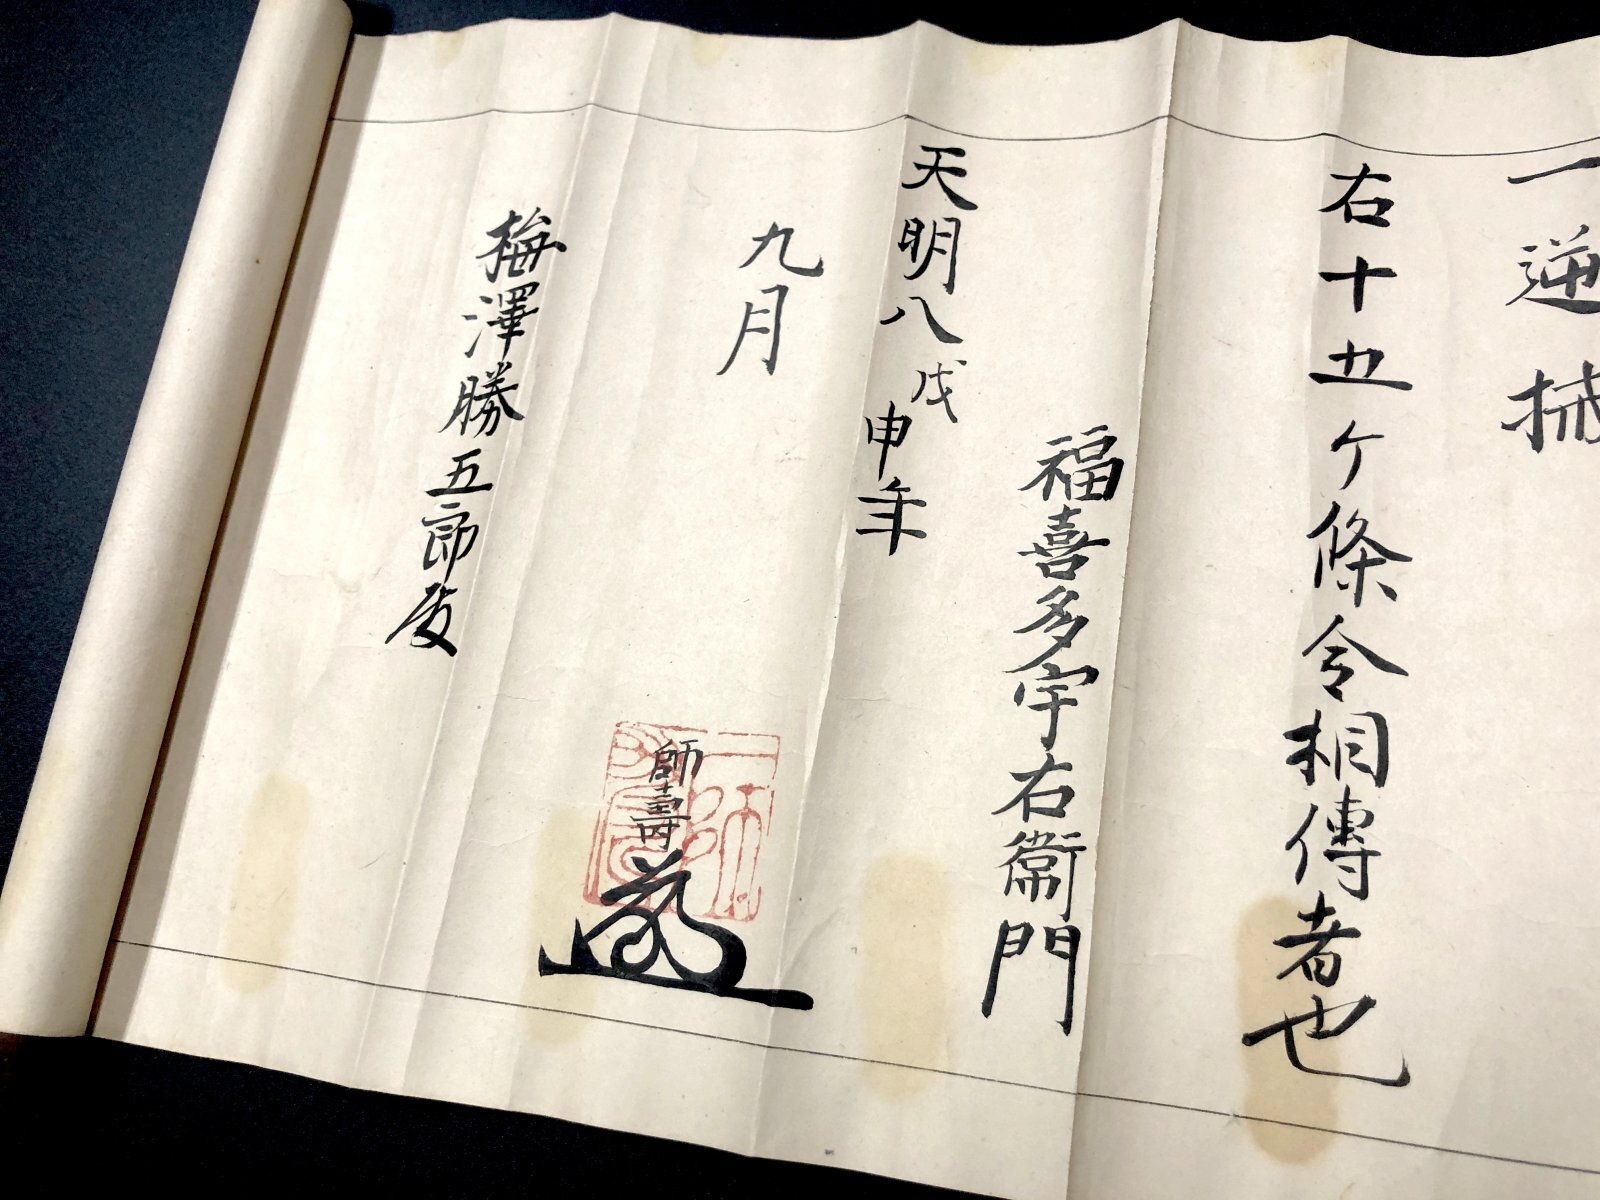 一逆械
右十五ヶ條令相傳者也
福喜多宇右衛門
天明八戊申年
九月
師壽
梅澤勝五郎殿